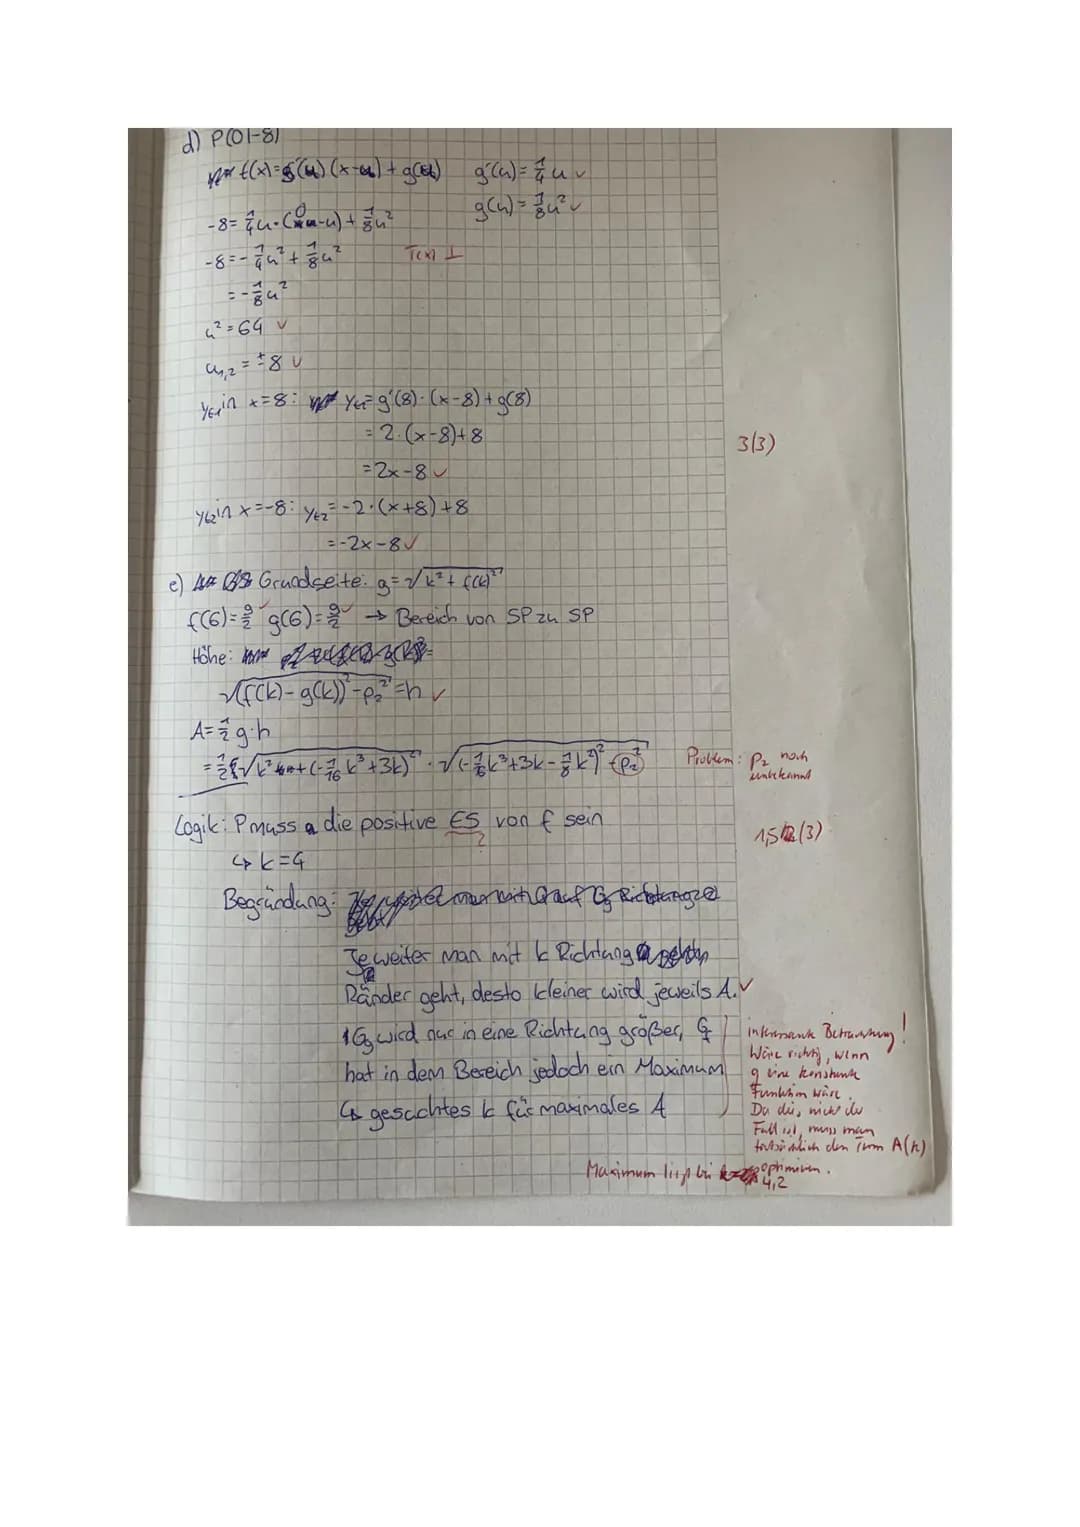 d) P(0|-8)
t(x)=g'(u)(x-u)+g(u) g'(u)=1/4 u ✓
g(u)=1/8 u² ✓
-8=1/4 u·(0-u)+1/8 u²
-8=-1/4 u²+1/8 u² Text ⊥
=-1/8 u²
u²=64 ✓
u1,2=±8 ✓
yt1 in x=8: yt1=g'(8)·(x-8)+g(8)
=2·(x-8)+8
3(3)
=2x-8 ✓
yt2 in x=-8: yt2=-2·(x+8)+8
=-2x-8 ✓
e) Grundseite: g=√(k²+f(k)²)
f(6)=9/2 ✓ g(6)=9/2 ✓ → Bereich von SP zu SP
Höhe:
√((f(k)-g(k))²-p₂²)=h ✓
A=1/2 g·h
=1/2·√(k²+(-1/16 k³+3k)²)·√((-1/16 k³+3k-1/8 k²)²-p₂²) Problem: p₂ noch
unbekannt
Logik: P muss die positive ES von f sein
? 1,5(3)
↳ k=4
Begründung:
Je weiter man mit k Richtung
Ränder geht, desto kleiner wird jeweils A. ✓
Gg wird nur in eine Richtung größer, Gf
hat in dem Bereich jedoch ein Maximum
↳ gesuchtes k für maximales A
interessante Betrachtung!
Wäre richtig, wenn
g eine konstante
Funktion wäre.
Da dies nicht der
Fall ist, muss man
tatsächlich den Term A(k)
optimieren.
Maximum liegt bei 4,2